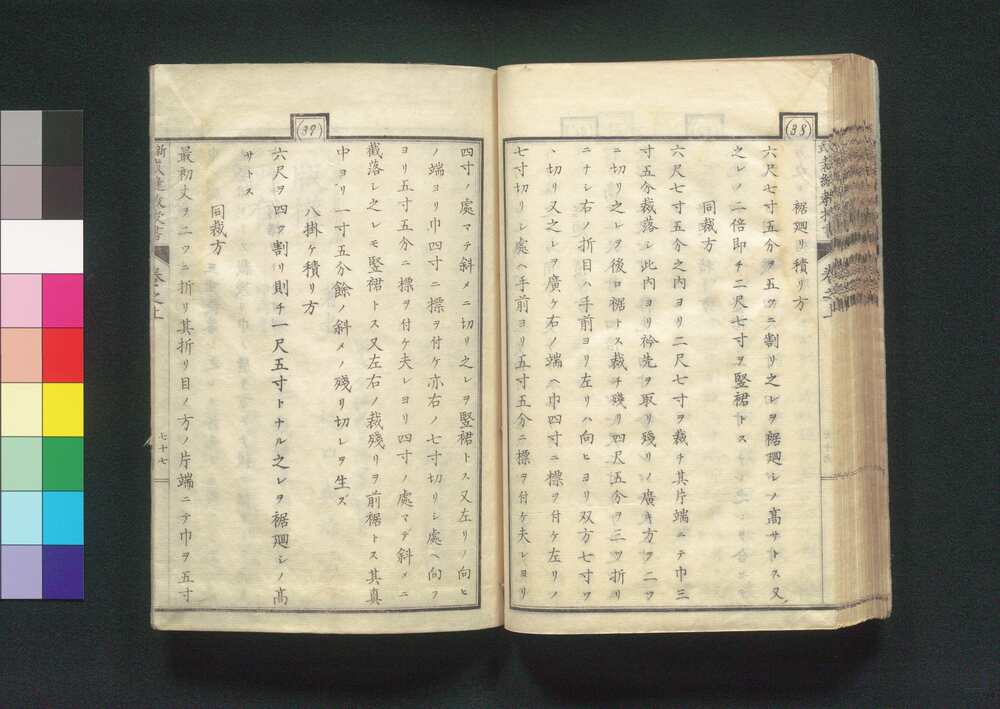 (38)
裾廻リ積リ方
六尺七寸五分ヲ五ツニ割リ之レヲ裾廻シノ高サトス又
之レノ二倍即チ二尺七寸ヲ竪裙トス
同裁方
六尺七寸五分之内ヨリ二尺七寸ヲ裁チ其片端ニテ巾三
寸五分裁落シ此内ヨリ衿先ヲ取リ残リノ廣キ方ヲ二ツ
ニ切リ之レヲ後ロ裾トス裁チ残リ四尺五分ヲ三ツ折リ
ニナシ右ノ折目ハ手前ヨリ左リハ向ヒヨリ双方七寸ツ
ヽ切リ又之レヲ廣ケ右ノ端ヘ巾四寸ニ標ヲ付ケ左リノ
七寸切リシ處ヘ手前ヨリ五寸五分ニ標ヲ付ケ夫レヨリ
(39)
四寸ノ處マテ斜メニ切リ之レヲ竪裙トス又左リノ向ヒ
ノ端ヨリ巾四寸ニ標ヲ付ケ亦右ノ七寸切リシ處ヘ向フ
ヨリ五寸五分ニ標ヲ付ケ夫レヨリ四寸ノ處マデ斜メニ
裁落シ之レモ竪裙トス又左右ノ裁残リヲ前裾トス其真
中ヨリ一寸五分餘ノ斜メノ残リ切レヲ生ズ
八掛ケ積リ方
六尺ヲ四ツ割リ則チ一尺五寸トナル之レヲ裾廻シノ高
サトス
同裁方
最初丈ヲ二ツニ折リ其折リ目ノ方ノ片端ニテ巾ヲ五寸
卷之上
七十七